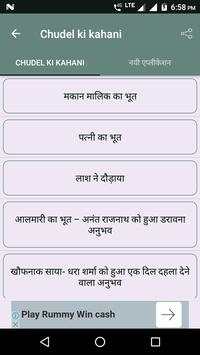 LTE 6:58 PM
Chudel ki kahani
CHUDEL KI KAHANI नयी एप्लीकेशन
मकान मालिक का भूत
पत्नी का भूत
लाश ने दौड़ाया
आलमारी का भूत – अनंत राजनाथ को हुआ डरावना
अनुभव
खौफनाक साया- धरा शर्मा को हुआ एक दिल दहला देने
वाला अनुभव
Play Rummy Win cash